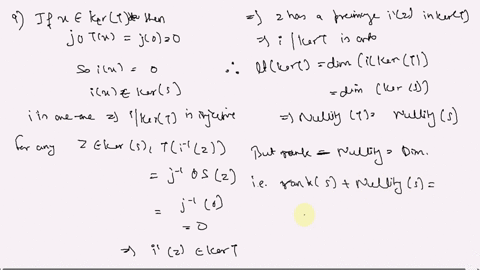 9) If x ∈ Ker(T) then
j0 T(x) = j(0) = 0
So i(x) = 0
i(x) ∈ Ker(S)
i is one-one => i/Ker(T) is injective
for any Z ∈ Ker(S), T(i⁻¹(Z))
= j⁻¹ 0 S(Z)
= j⁻¹(0)
= 0
=> i'(Z) ∈ Ker T
=> Z has a preimage i'(Z) in Ker(T)
=> i/Ker T is onto
∴ (Ker T) = dim(i(Ker(T))
= dim (Ker(S))
=> Nullity (T) = Nullity (S)
But rank = Nullity = Dim.
i.e. rank(S) + Nullity(S) =